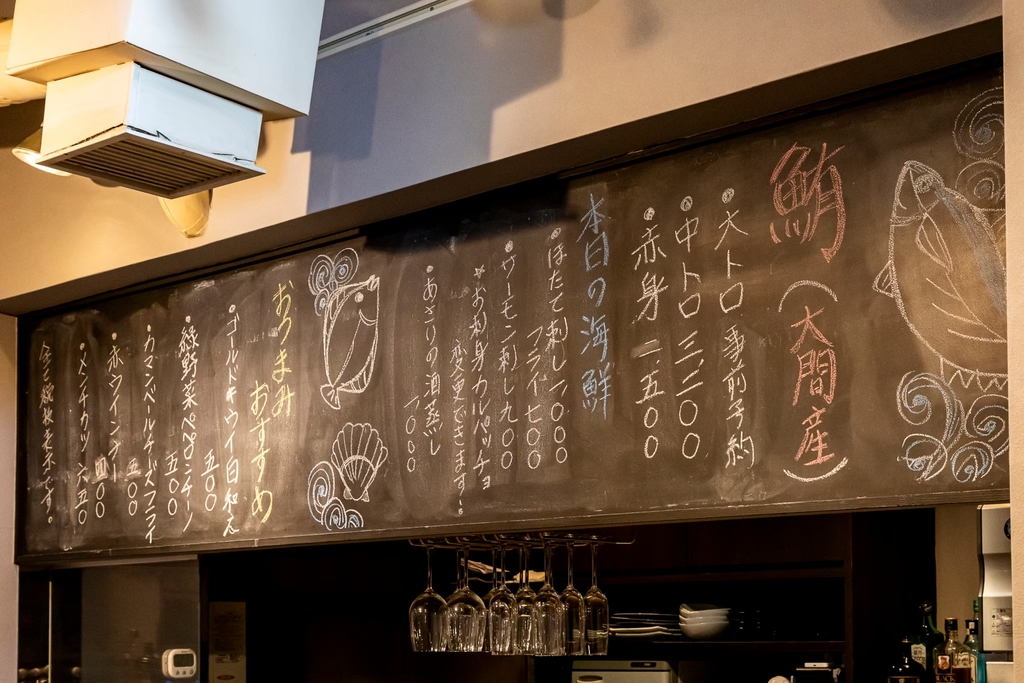 鮪
(大間産)
・大トロ 事前予約
・中トロ 三三〇〇
・赤身 二、五〇〇
本日の海鮮
・ほたて刺し一〇〇〇
フライ七〇〇
・サーモン刺し九〇〇
☆お刺身カルパッチョ
変更できます!
・あさりの酒蒸し
一〇〇〇
おつまみ
おすすめ
・ゴールドキウイ白和え
五〇〇
・緑野菜ペペロンチーノ
五〇〇
・カマンベールチーズフライ
五〇〇
・赤ウインナー
四〇〇
・メンチカツ一ケ六五〇
全て税抜表示です。